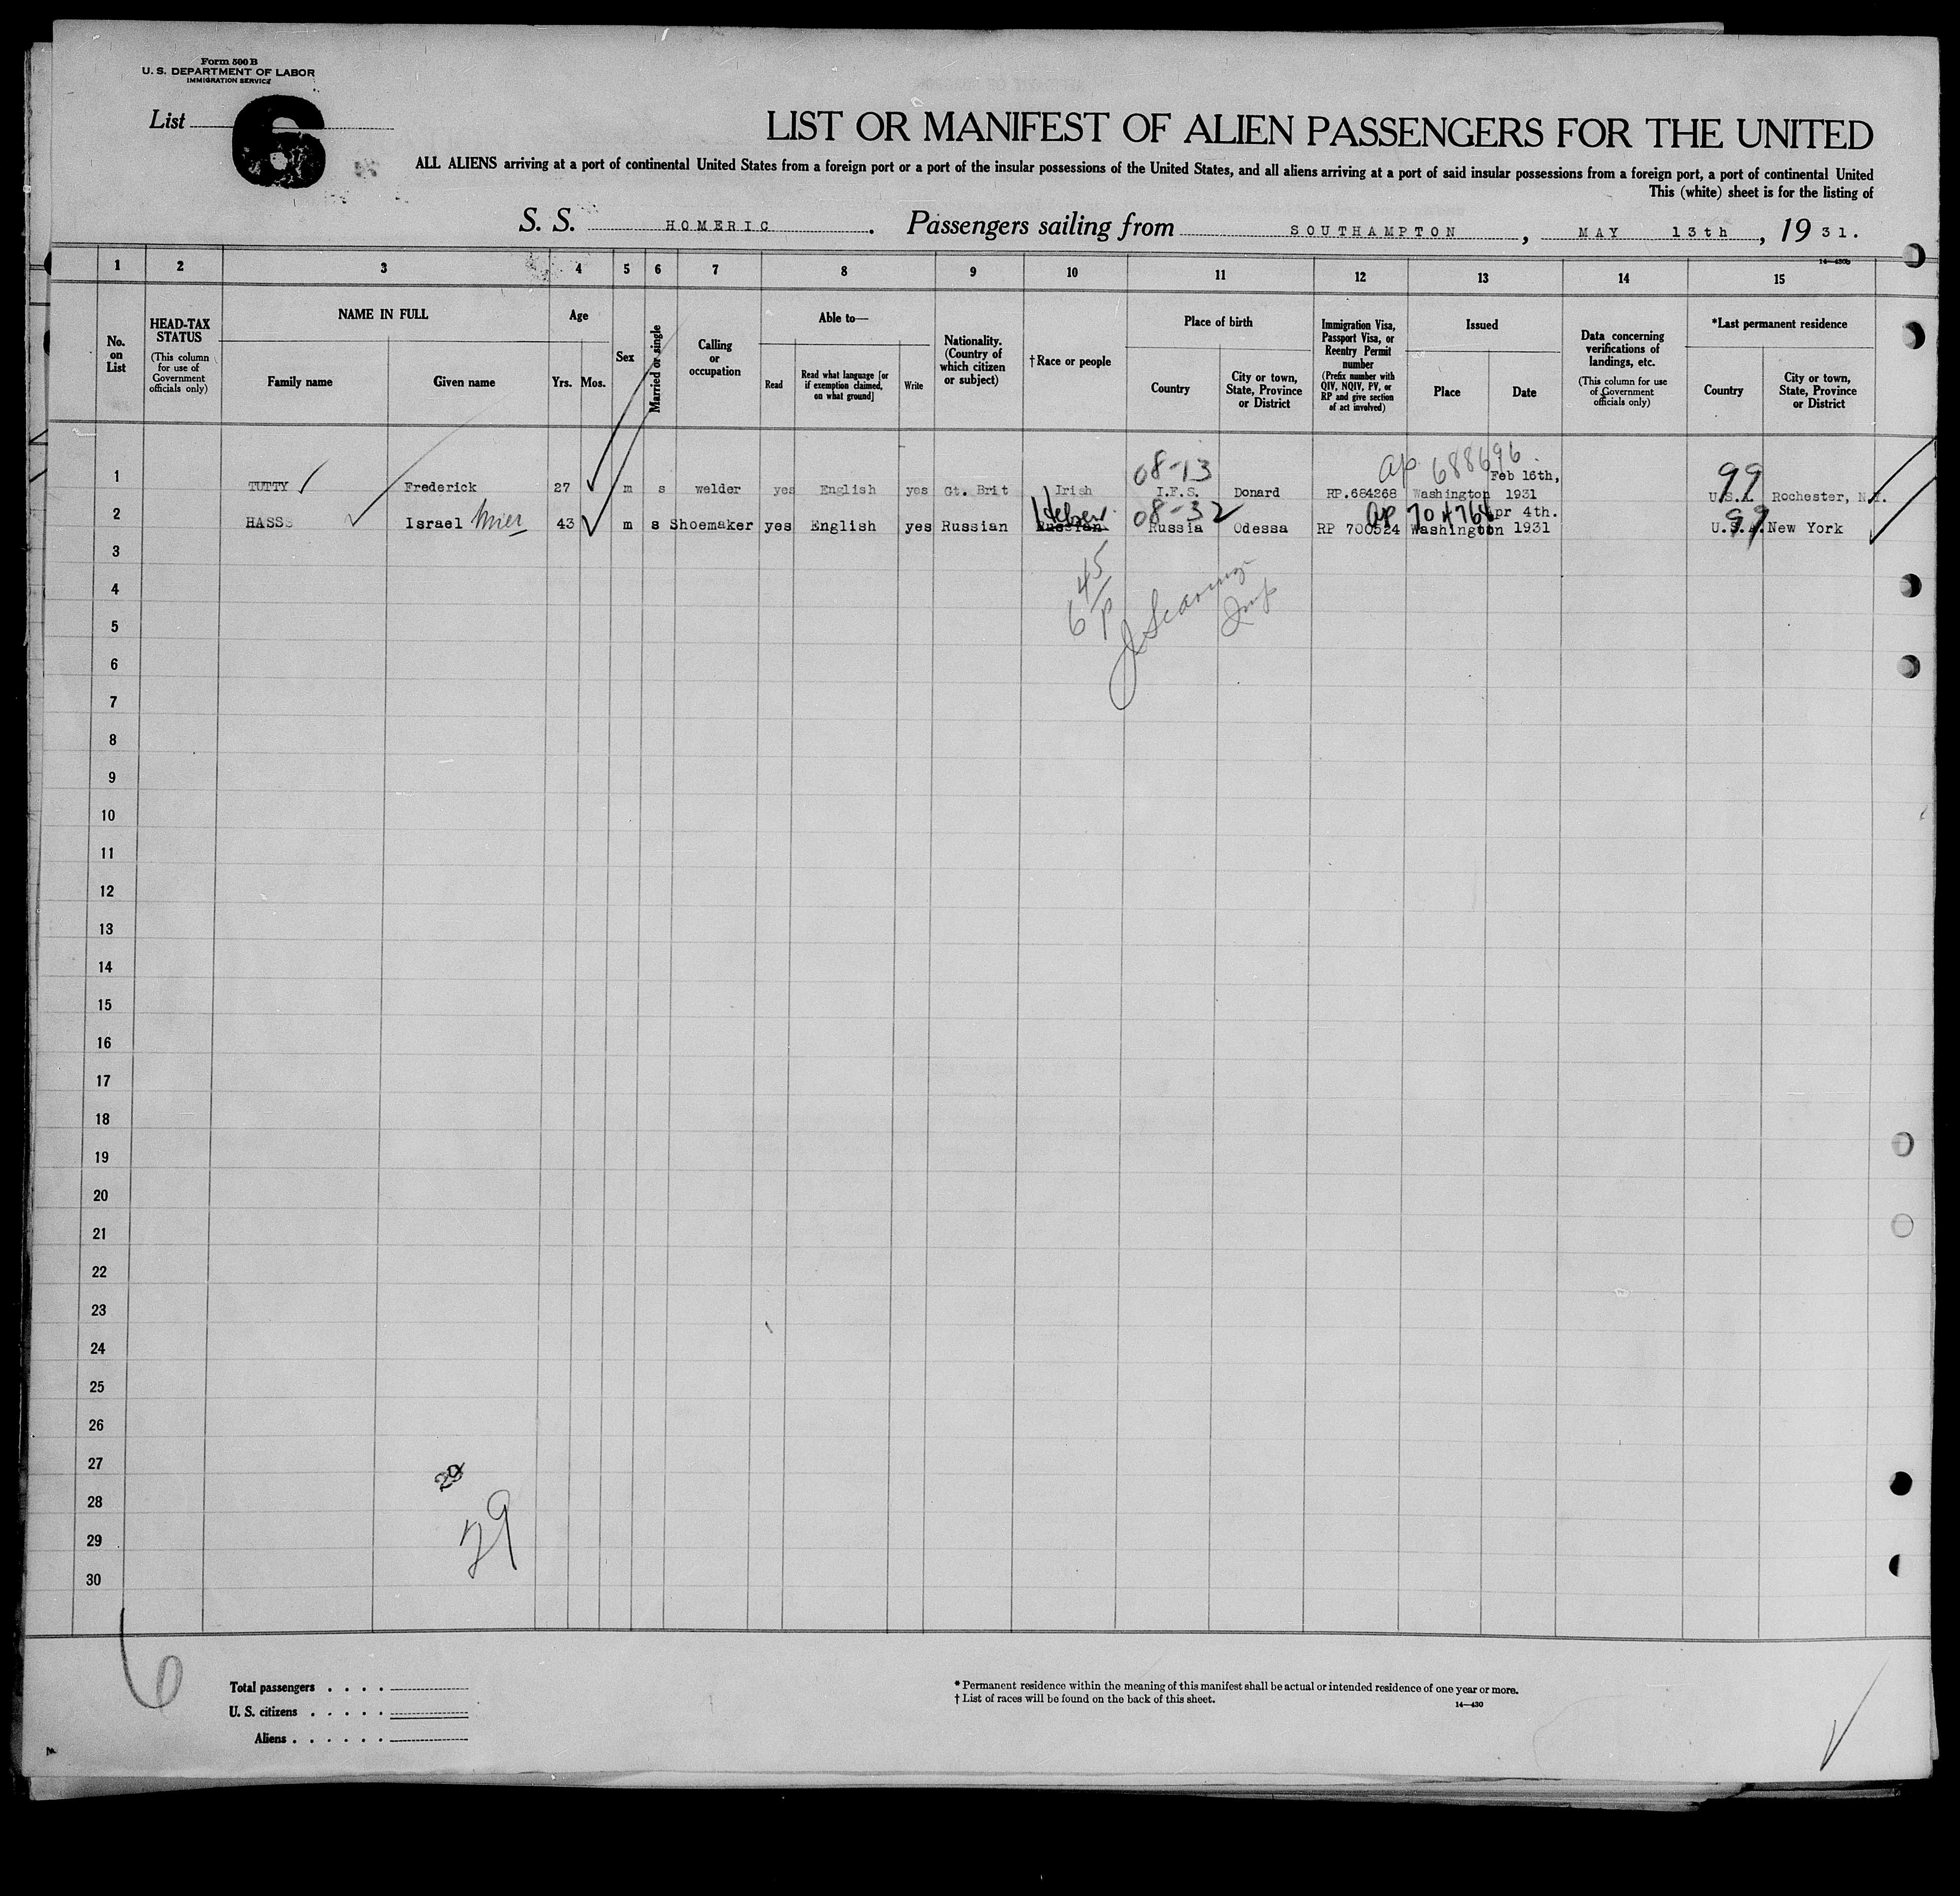 Form 500 B
U. S. DEPARTMENT OF LABOR
IMMIGRATION SERVICE
List 6
LIST OR MANIFEST OF ALIEN PASSENGERS FOR THE UNITED
ALL ALIENS arriving at a port of continental United States from a foreign port or a port of the insular possessions of the United States, and all aliens arriving at a port of said insular possessions from a foreign port, a port of continental United
This (white) sheet is for the listing of
S. S. HOMERIC. Passengers sailing from SOUTHAMPTON, MAY 13th, 19 31.
14—430b
1 2 3 4 5 6 7 8 9 10 11 12 13 14 15
No. on List
HEAD-TAX STATUS (This column for use of Government officials only)
NAME IN FULL
Family name
Given name
Age
Yrs. Mos.
Sex
Married or single
Calling or occupation
Able to—
Read
Read what language [or if exemption claimed, on what ground]
Write
Nationality. (Country of which citizen or subject)
† Race or people
Place of birth
Country
City or town, State, Province or District
Immigration Visa, Passport Visa, or Reentry Permit number (Prefix number with QIV, NQIV, PV, or RP and give section of act involved)
Issued
Place
Date
Data concerning verifications of landings, etc. (This column for use of Government officials only)
*Last permanent residence
Country
City or town, State, Province or District
08-13 ap 688696 99
1 TUTTY Frederick 27 m s welder yes English yes Gt. Brit Irish I.F.S. Donard RP.684268 Washington Feb 16th, 1931 U.S.A. Rochester, N.Y.
Hebrew 08-32 ap 99
2 HASS Israel m s 43 Shoemaker yes English yes Russian Russian Russia Odessa RP 700524 Washington Apr 4th. 1931 U.S.A. New York
3
4
5
6
7
8
9
10
11
12
13
14
15
16
17
18
19
20
21
22
23
24
25
26
27
28
29
30
29
6
Total passengers . . . .
U. S. citizens . . . . .
Aliens . . . . . .
* Permanent residence within the meaning of this manifest shall be actual or intended residence of one year or more.
† List of races will be found on the back of this sheet.
14—430